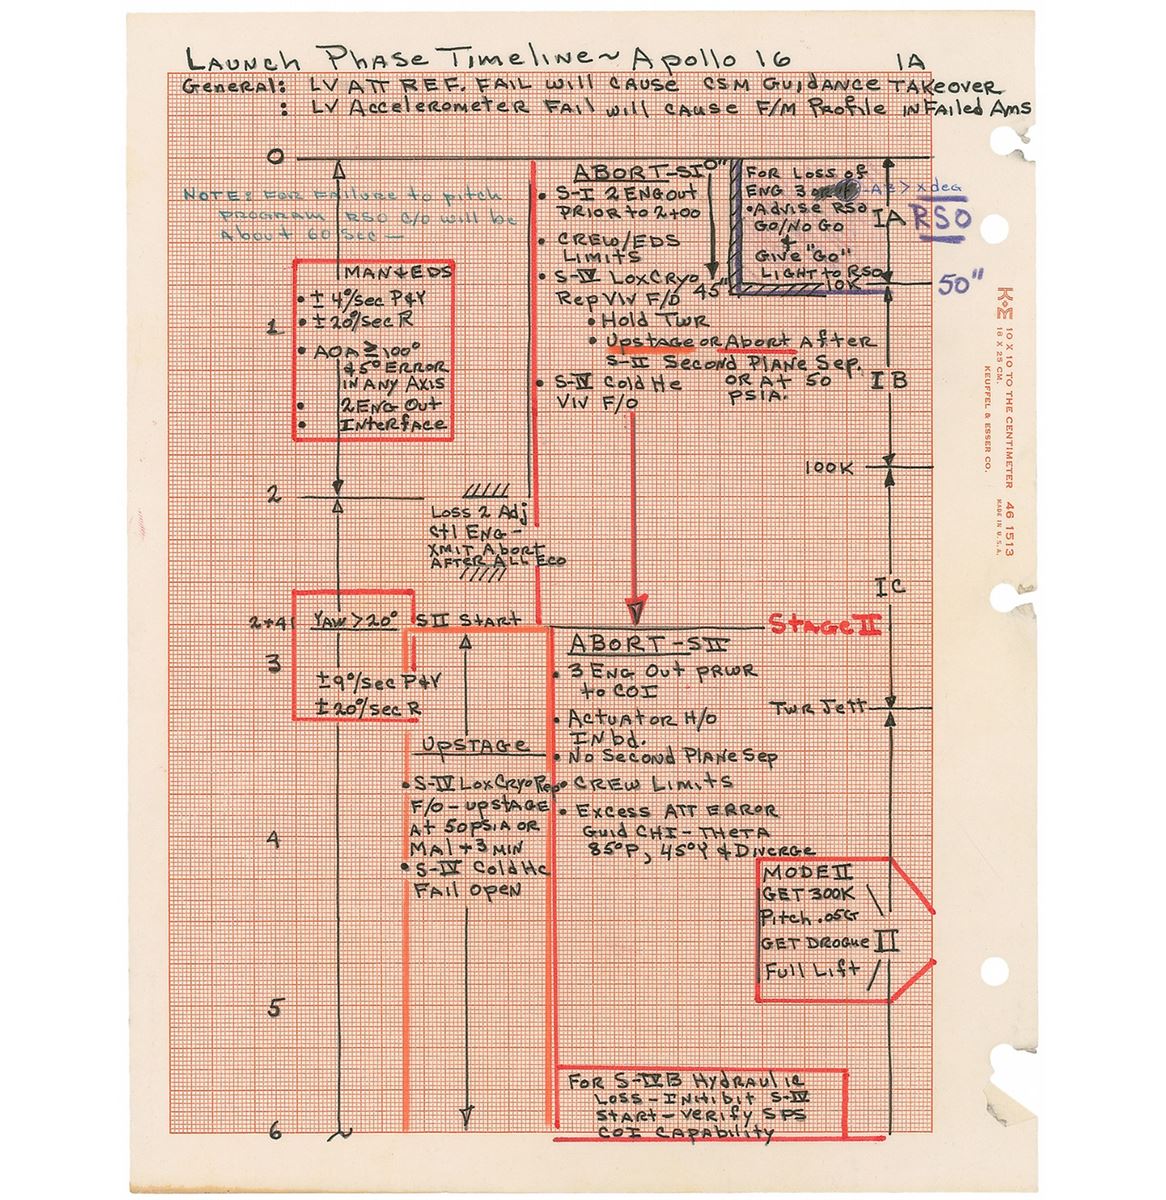 Launch Phase Timeline ~ Apollo 16 1A
General: LV ATT REF. FAIL will cause CSM Guidance TAKEover
: LV Accelerometer Fail will cause F/M Profile in Failed Ams
0
NOTE: FOR FAILURE to pitch
PROGRAM RSO C/O will be
About 60 Sec —
MAN & EDS
• ± 4°/sec P&Y
• ± 20°/sec R
1
• AOA ≥ 100°
& 5° ERROR
IN ANY AXIS
• 2 ENG Out
• Interface
2
ABORT-SI
• S-I 2 ENG out
PRIOR to 2+00
• CREW/EDS
Limits
• S-IV Lox Cryo
Rep Vlv F/O
• Hold Twr
• Upstage or Abort After
S-II Second Plane Sep.
OR At 50
PSIA.
• S-IV Cold He
Vlv F/O
0"
45"
FOR Loss of
ENG 3
• Advise RSO
GO/NO GO
+
Give "Go"
Light to RSO
10K
IA
> x deg
RSO
50"
IB
100K
IC
Loss 2 Adj
Ctl ENG -
XMIT Abort
AFTER ALL ECO
2+41
YAW > 20°
SII Start
Stage II
3
± 9°/sec P&Y
± 20°/sec R
ABORT-SII
• 3 ENG Out PRIOR
to COI
• Actuator H/O
INbd.
• No Second Plane Sep
• CREW Limits
• Excess ATT ERROR
Guid CHI-THETA
85°P, 45°Y & Diverge
Twr Jett
Upstage
• S-IV Lox Cryo Rep
F/O - upstage
At 50 PSIA OR
Mal + 3 MIN
• S-IV Cold He
Fail Open
4
MODE II
GET 300K
Pitch .05G
GET Drogue
Full Lift
II
5
FOR S-IVB Hydraulic
Loss - Inhibit S-IV
Start - Verify SPS
COI CAPABILITY
6
K+E
10 X 10 TO THE CENTIMETER 46 1513
18 X 25 CM. MADE IN U.S.A.
KEUFFEL & ESSER CO.